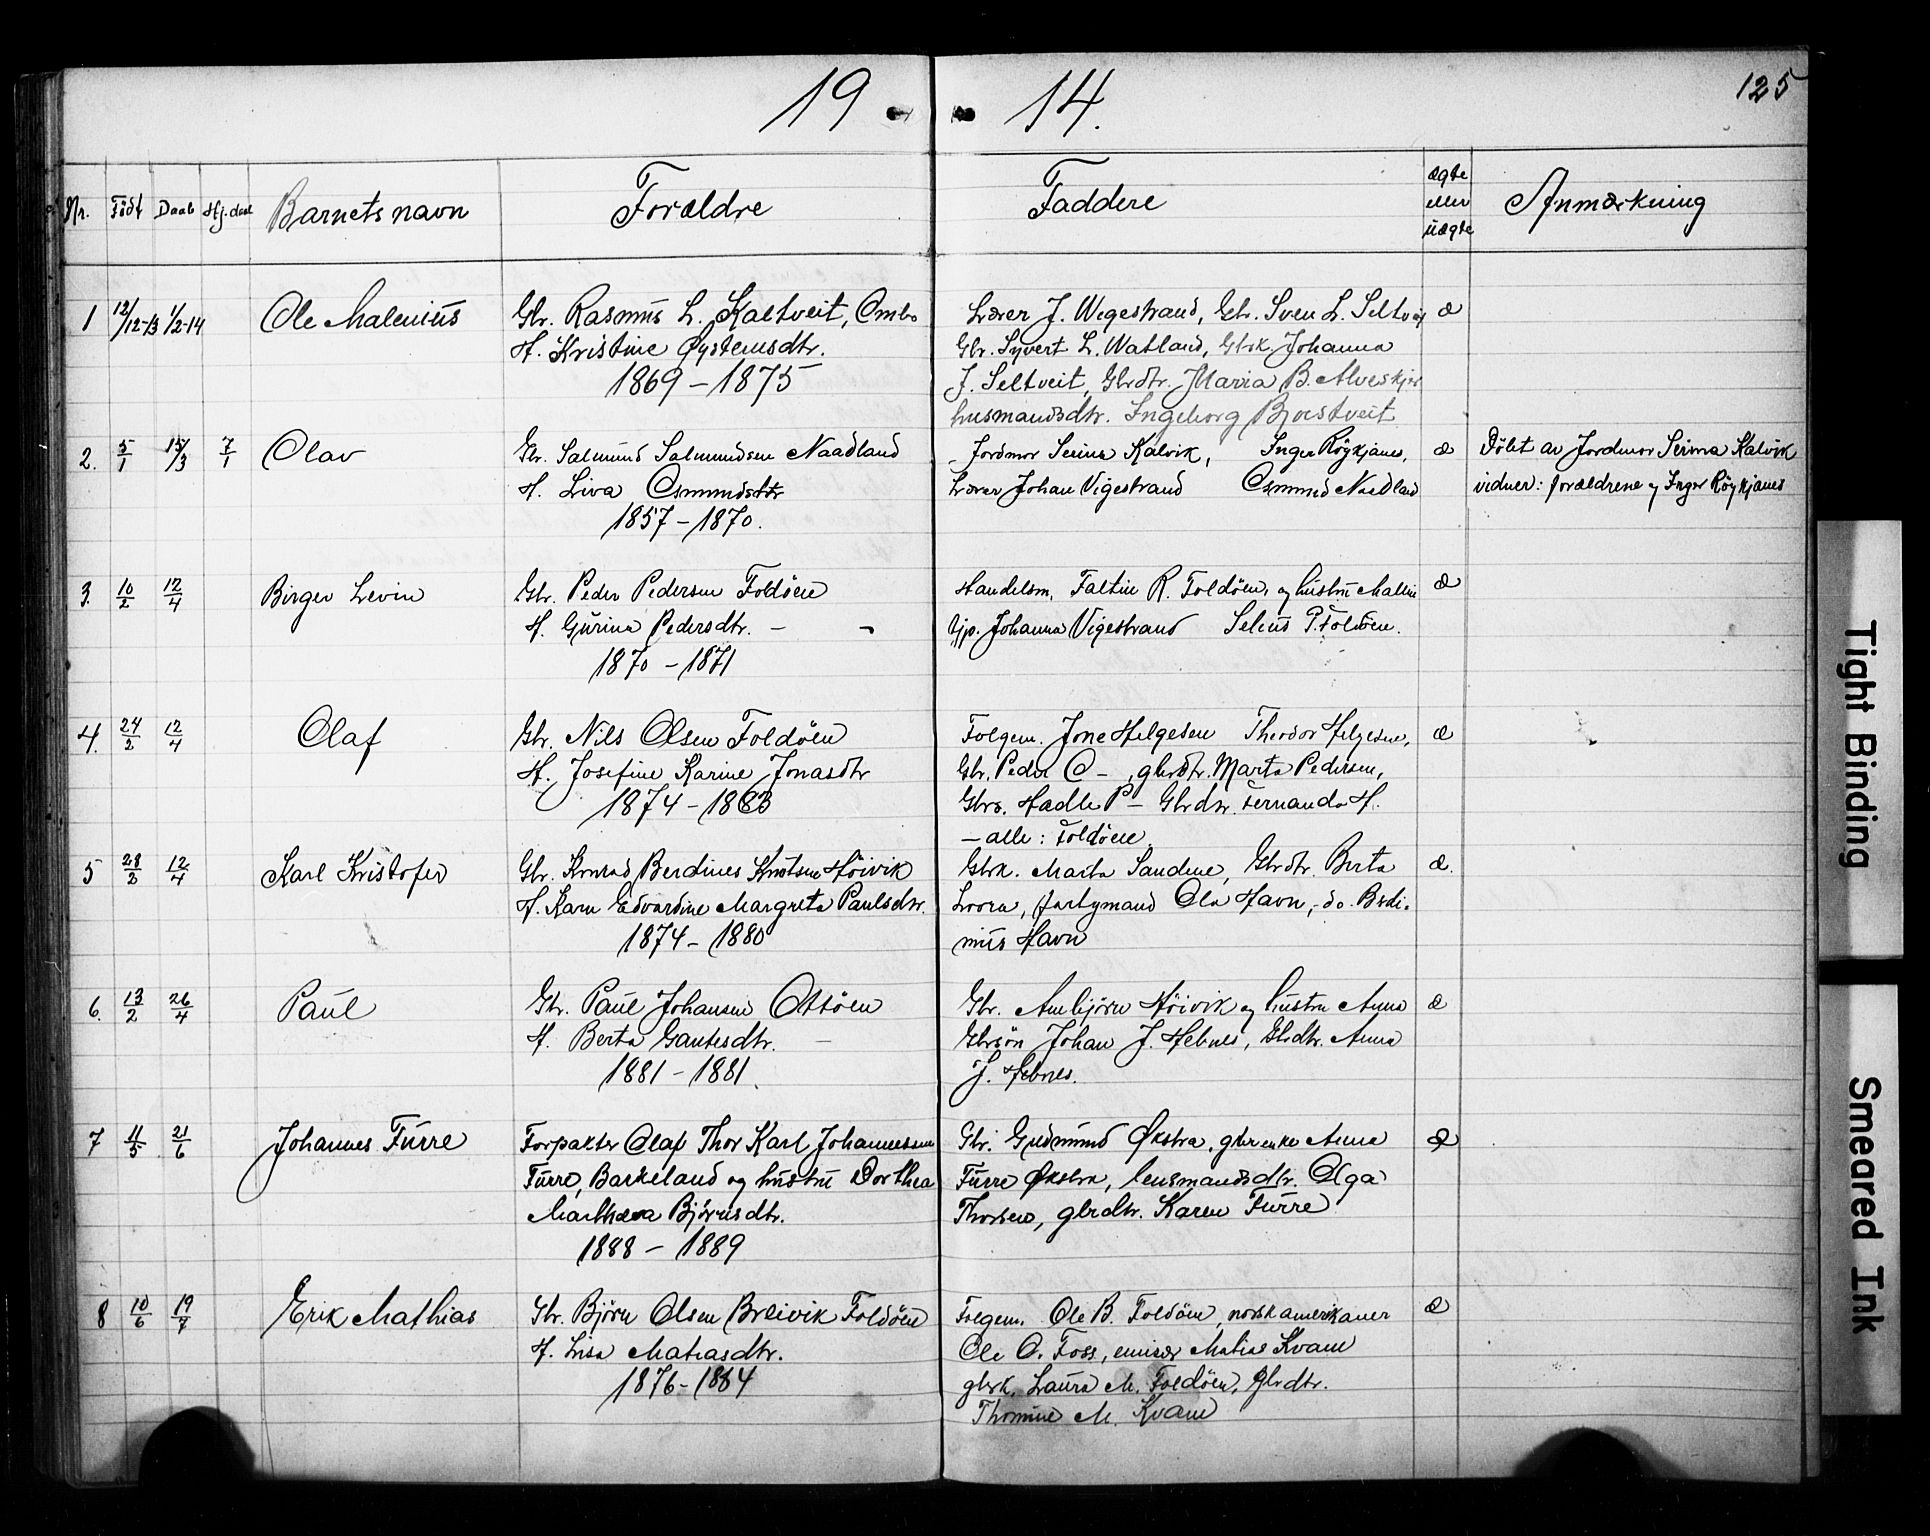 19 14.
125
Nr. Födt Daab Hj.daab Barnets navn Forældre Faddere ægte eller uægte Anmærkning
1 12/12-13 1/2-14 Ole Malenius Gbr. Rasmus L. Kaltveit, Ombo Lærer J. Wegestrand, Gbr. Sven L. Seltveit æ
H. Kristine Øysteinsdtr. Gbr. Syvert L. Watland, Gbrk. Johanna
1869 - 1875 J. Seltveit, Gbrdtr. Maria B. Alveskjer
husmandsdtr. Ingeborg Bjostveit
2. 5/1 15/3 7/1 Olav Gbr. Salmund Salmundsen Naadland Jordmor Serina Kalvik, Inger Röykjanes, æ Döbt av Jordmor Serina Kalvik
H. Liva Osmundsdtr Lærer Johan Vigestrand Osmund Naadland vidner: forældrene og Inger Röykjanes
1857 - 1870.
3. 10/2 12/4 Birger Levin Gbr. Peder Pedersen Foldöen Handelsm. Faltin R. Foldöen, og hustru Malene æ
H. Gurina Pedersdtr. - - Tjp. Johanna Vigestrand Selius P. Foldöen.
1870 - 1871
4. 24/2 12/4 Olaf Gbr. Nils Olsen Foldöen Folgem. Jone Helgesen Theodor Helgesen, æ
H. Josefine Karine Jonasdtr Gbr. Peder O - , gbrdtr. Marta Pedersen,
1874 - 1883 Gbrs. Hadle P - Gbrdtr. Fernanda H.
- alle: Foldöen
5 28/2 12/4 Karl Kristofer Gbr. Konrad Berdines Knutsen Höivik Gbrk. Marta Sandene, Gbrdtr. Berta æ.
H. Karen Edvardine Margreta Paulsdtr. Loora, fartymand Ola Havn, - do. Berdi-
1874 - 1880 nius Havn
6. 13/2 26/4 Paul Gbr. Paul Johansen Ottöen Gbr. Ambjörn Höivik og hustru Anna æ
H. Berta Gautesdtr. - Gbrsön Johan J. Hebnes, Gbrdtr. Anna
1881 - 1881. J. Hebnes.
7 11/5 21/6 Johannes Furre Forpakter Olaf Thor Karl Johannessen Gbr. Gudmund Økstra, gbrenke Anna æ
Furre, Barkeland og hustru Dorthea Furre Økstra, lensmandsdtr. Olga
Marthea Björnsdtr. Thorsen, gbrdtr. Karen Furre
1888 - 1889
8 10/6 19/7 Erik Mathias Gbr. Björn Olsen Breivik Foldöen Folgem. Ole B. Foldöen, norskamerikaner æ
H. Lisa Matiasdtr. Ole O. Foss, emisær Matias Kvame
1876 - 1884 gbrk. Laura M. Foldöen, Gbrdtr.
Thomine M. Kvame
Tight Binding
Smeared Ink